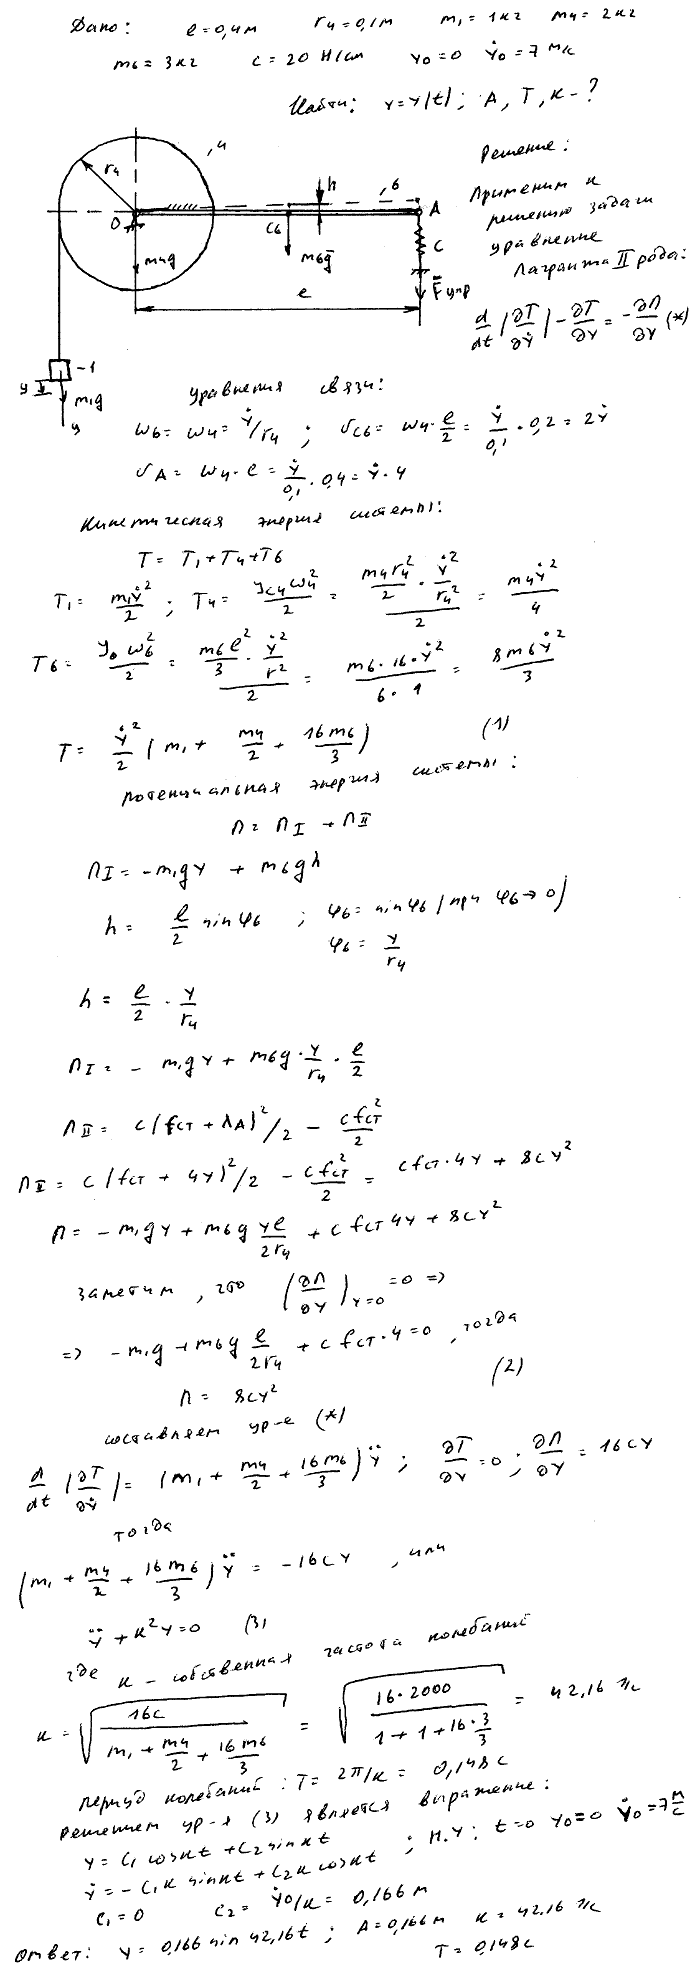 Дано: l=0,4м r₄=0,1м m₁=1кг m₄=2кг
m₆=3кг c=20 Н/см y₀=0 ẏ₀=7 м/с
Найти: y=y(t); A, T, к-?
Решение:
Применим к
решению задачи
уравнение
Лагранжа II рода:
d/dt (∂T/∂ẏ) - ∂T/∂y = -∂П/∂y (*)
r₄
4
h
6
O
C₆
A
m₄g
m₆g̅
c
F̅упр
l
1
y
m₁g
y
уравнения связи:
ω₆ = ω₄ = ẏ/r₄ ; υc₆ = ω₄·l/2 = ẏ/0,1 · 0,2 = 2ẏ
υA = ω₄·l = ẏ/0,1 · 0,4 = ẏ·4
Кинетическая энергия системы:
T = T₁+T₄+T₆
T₁ = m₁ẏ²/2 ; T₄ = Jc₄ω₄²/2 = (m₄r₄²/2 · ẏ²/r₄²)/2 = m₄ẏ²/4
T₆ = J₀ω₆²/2 = (m₆l²/3 · ẏ²/r²)/2 = m₆·16·ẏ²/6·1 = 8m₆ẏ²/3
T = ẏ²/2 (m₁ + m₄/2 + 16m₆/3) (1)
потенциальная энергия системы:
П = П_I + П_II
П_I = -m₁gy + m₆gh
h = l/2 sinφ₆ ; φ₆ = sinφ₆ (при φ₆→0)
φ₆ = y/r₄
h = l/2 · y/r₄
П_I = - m₁gy + m₆g · y/r₄ · l/2
П_II = c(fст + λA)²/2 - cfст²/2
П_II = c(fст + 4y)²/2 - cfст²/2 = cfст·4y + 8cy²
П = -m₁gy + m₆g yl/2r₄ + cfст4y + 8cy²
заметим, что (∂П/∂y)y=0 = 0 =>
=> -m₁g + m₆g l/2r₄ + cfст·4=0, тогда
П = 8cy² (2)
составляем ур-е (*)
d/dt (∂T/∂ẏ) = (m₁ + m₄/2 + 16m₆/3)ÿ ; ∂T/∂y = 0 ; ∂П/∂y = 16cy
тогда
(m₁ + m₄/2 + 16m₆/3)ÿ = -16cy, или
ÿ + к²y=0 (3)
где к - собственная частота колебаний
к = √(16c/(m₁ + m₄/2 + 16m₆/3)) = √(16·2000/(1+1+16·3/3)) = 42,16 1/c
период колебаний: T = 2π/к = 0,148c
Решением ур-я (3) является выражение:
y = C₁ cosкt + C₂ sinкt
ẏ = -C₁к sinкt + C₂к cosкt ; Н.У: t=0 y₀=0 ẏ₀=7м/с
C₁=0 C₂ = ẏ₀/к = 0,166 м
Ответ: y = 0,166 sin 42,16t ; A=0,166м к=42,16 1/c
T=0,148c